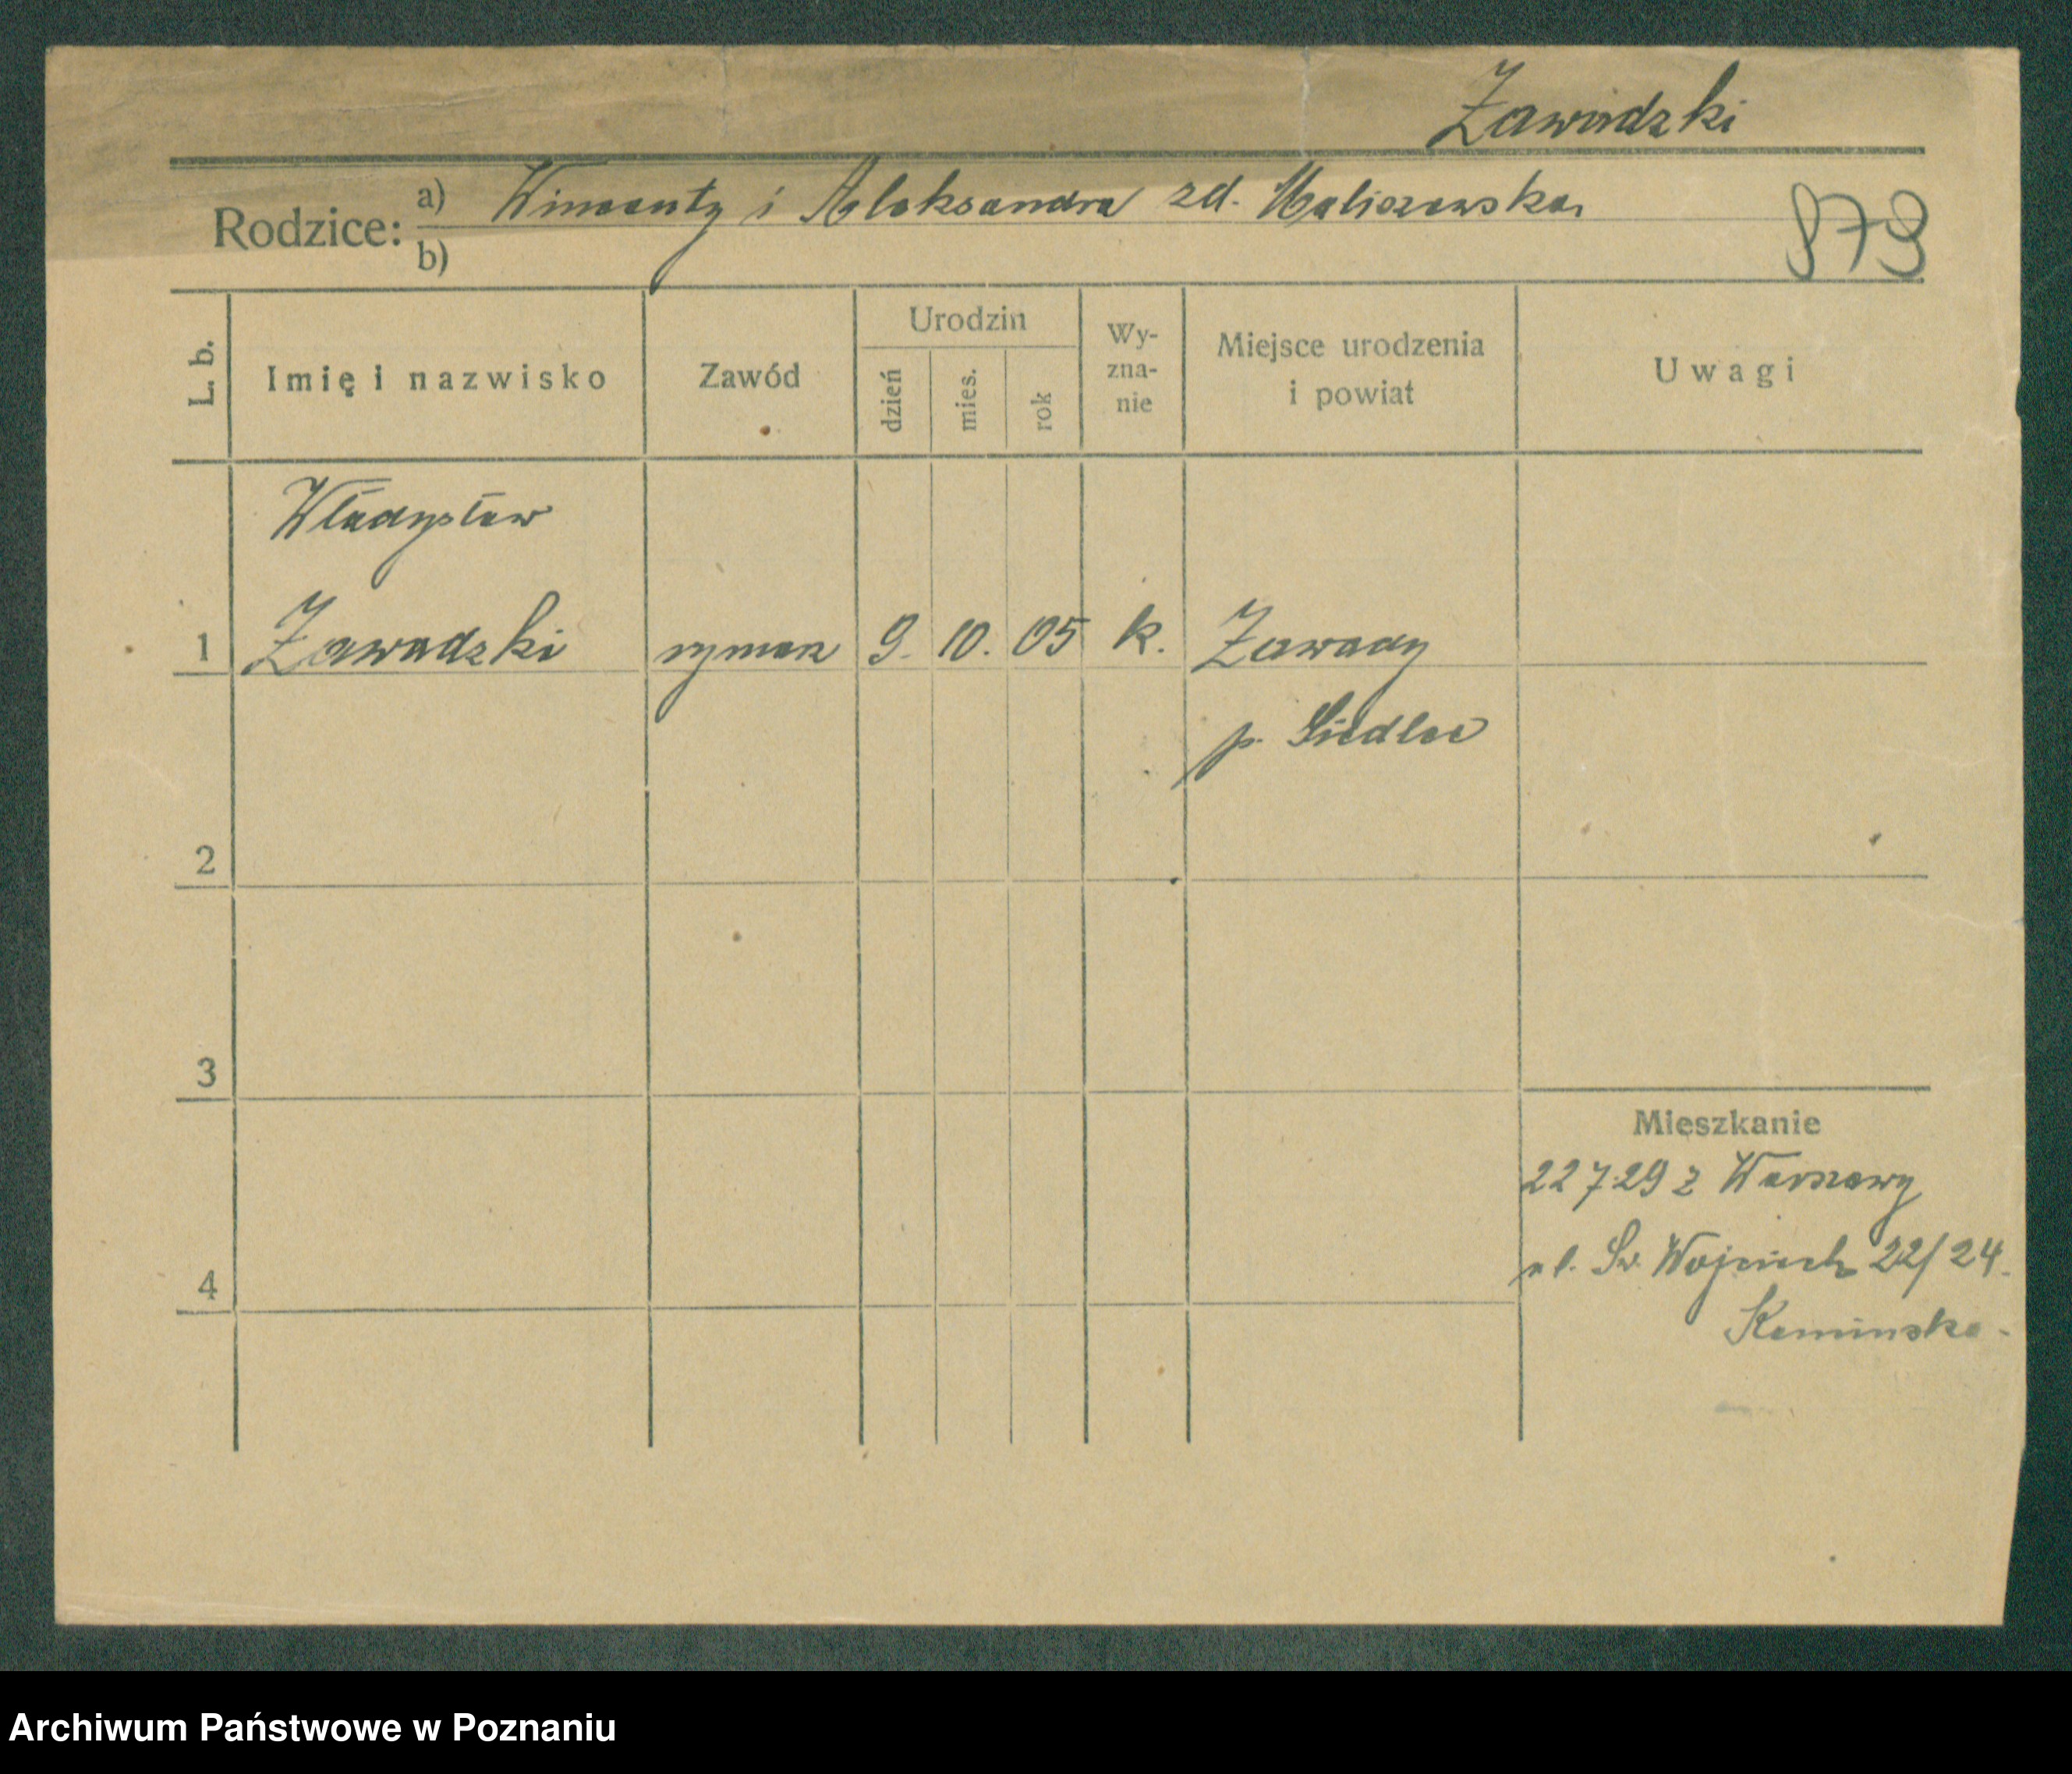 Zawadzki
Rodzice: a) Wincenty i Aleksandra zd. Maliszewska
b)
879
L. b. Imię i nazwisko Zawód Urodzin dzień mies. rok Wy-zna-nie Miejsce urodzenia i powiat Uwagi
Władysław
1 Zawadzki rymarz 9. 10. 05 k. Zawady
p. Siedlce
2
3
Mieszkanie
22 7.29 z Warszawy
ul. Św. Wojciech 22/24.
4
Kaminska-
Archiwum Państwowe w Poznaniu